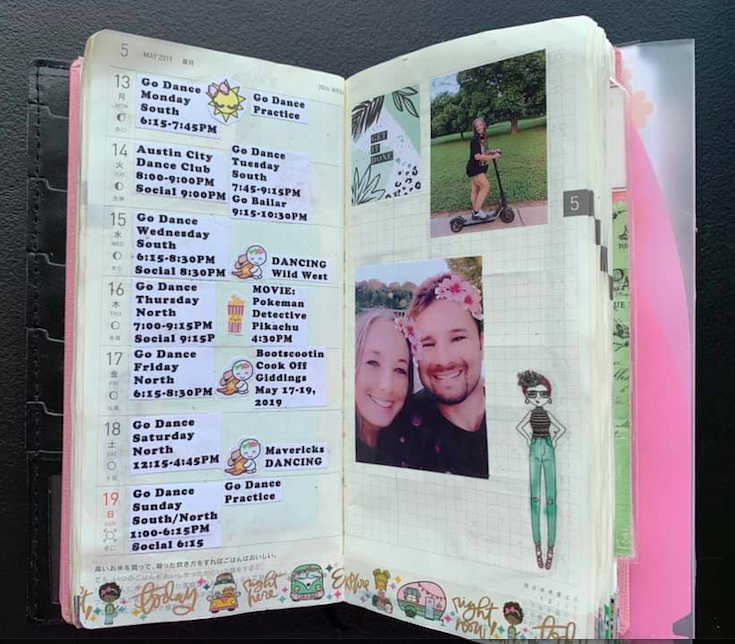 5 MAY 2019
20th WEEK
13
月
MON
Go Dance
Monday
South
6:15-7:45PM
Go Dance
Practice
14
火
TUE
Austin City
Dance Club
8:00-9:00PM
Social 9:00PM
Go Dance
Tuesday
South
7:45-9:15PM
Go Bailar
9:15-10:30PM
15
水
WED
Go Dance
Wednesday
South
6:15-8:30PM
Social 8:30PM
DANCING
Wild West
16
木
THU
Go Dance
Thursday
North
7:00-9:15PM
Social 9:15P
MOVIE:
Pokeman
Detective
Pikachu
4:30PM
17
金
FRI
Go Dance
Friday
North
6:15-8:30PM
Bootscootin
Cook Off
Giddings
May 17-19,
2019
18
土
Go Dance
Saturday
North
12:15-4:45PM
Mavericks
DANCING
19
日
SUN
Go Dance
Sunday
South/North
1:00-6:15PM
Social 6:15
Go Dance
Practice
高いお米を買って、凝った炊き方をすればごはんはおいしい。
today
right
here
Explore
right
now
GET
IT
DONE
5